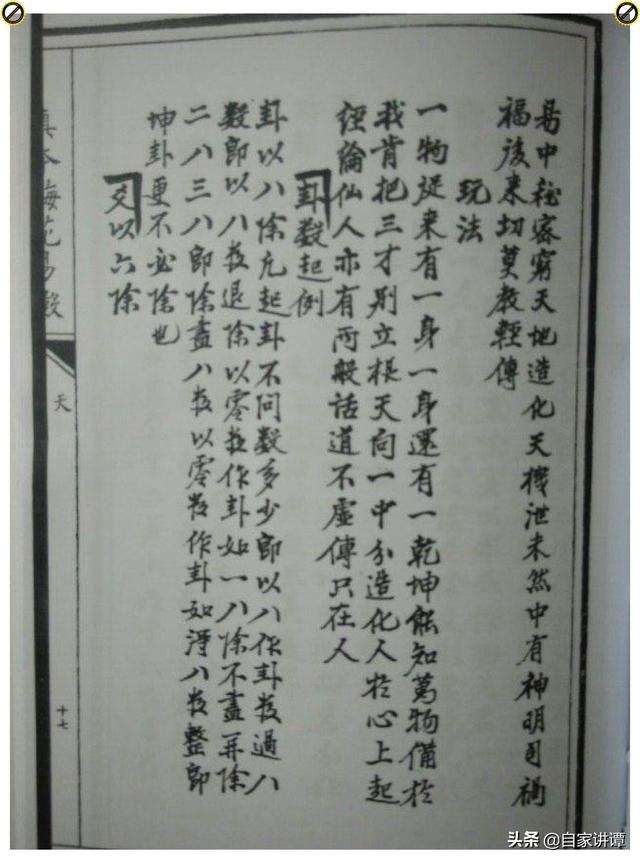 易中秘密窮天地造化天機泄未然中有神明司禍
福後来切莫教輕傳
玩法
一物從来有一身一身還有一乾坤能知萬物備於
我肯把三才别立根天向一中分造化人於心上起
經綸仙人亦有两般話道不虚傳只在人
卦数起例
卦以八除凢起卦不問数多少即以八作卦数過八
数即以八数退除以零数作卦如一八除不盡再除
二八三八即除盡八数以零数作卦如得八数整即
坤卦更不必除也
爻以六除
真本梅花易數
天
十七
头条 @自家讲谭